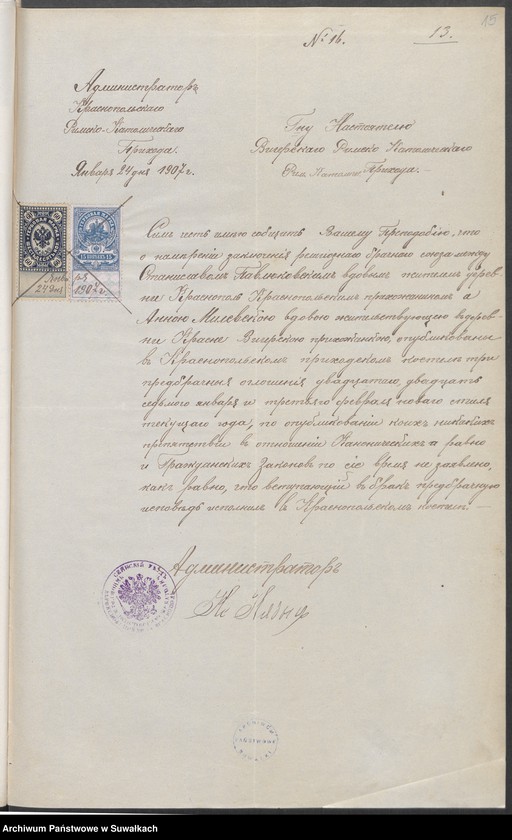 15
№ 16.
13.
Администраторъ
Краснопольскаго
Римско-Католическаго
Прихода.
Января 24 дня 1907 г.
Гну Настоятелю
Вигерскаго Римско Католическаго
Прихода.
60
15 КОПѢЕКЪ 15
Янв.
24 дня
1907 г.
Симъ честь имѣю сообщить Вашему Преподобію, что
о намѣреніи заключенія религіознаго брачнаго союза между
Станиславомъ Павлюковскимъ вдовымъ жителемъ дерев-
ни Краснополь Краснопольскимъ прихожаниномъ а
Анною Милевскою вдовою жительствующею въ дерев-
ни Красне Вигерскою прихожанкою, опубликованы
въ Краснопольскомъ приходскомъ костелѣ три
предбрачныя оглашенія двадцатаго, двадцать
седьмого января и третьяго февраля новаго стиля
текущаго года, по опубликованіи коихъ никакихъ
препятствій въ отношеніи Каноническихъ а равно
и Гражданскихъ Законовъ по сіе время не заявлено,
какъ равно, что вступающій въ бракъ предбрачную
исповѣдь исполнилъ въ Краснопольскомъ костелѣ. —
Администраторъ
Кс
Archiwum Państwowe w Suwałkach